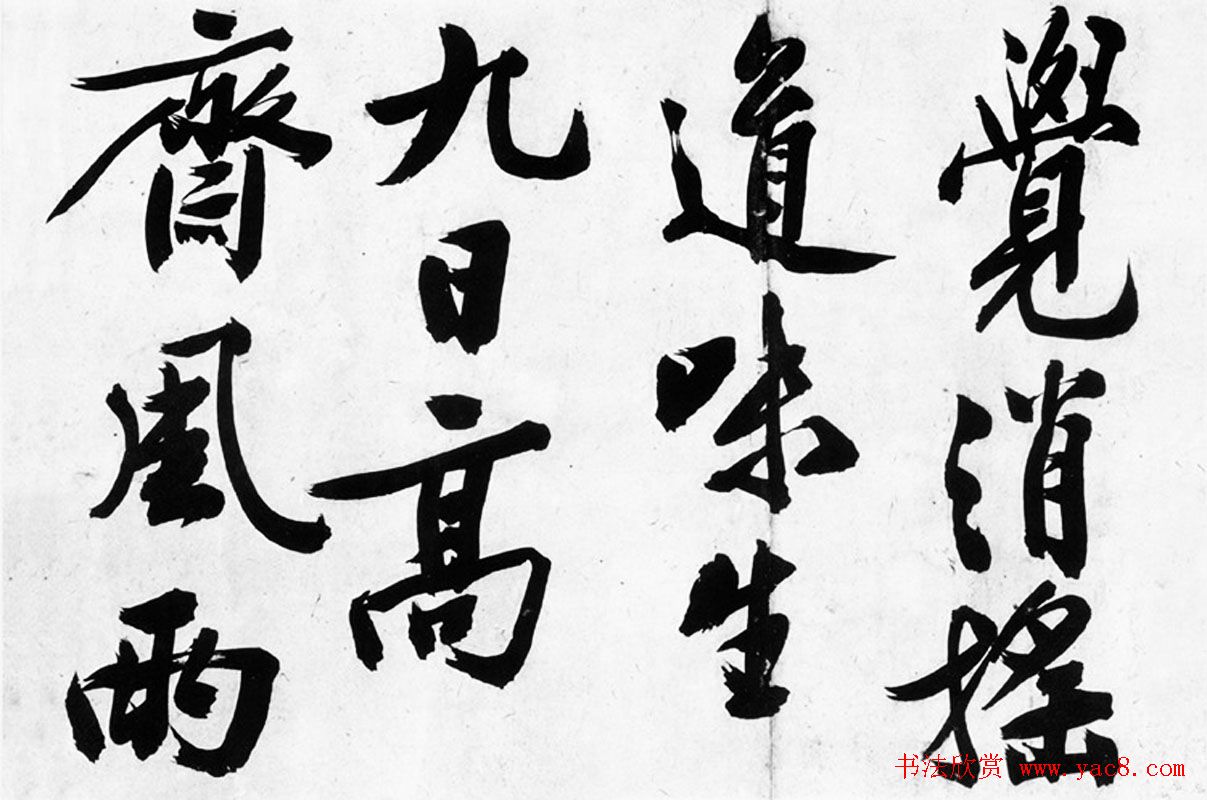 覺消搖
道味生
九日高
齊風雨
书法欣赏 www.yac8.com